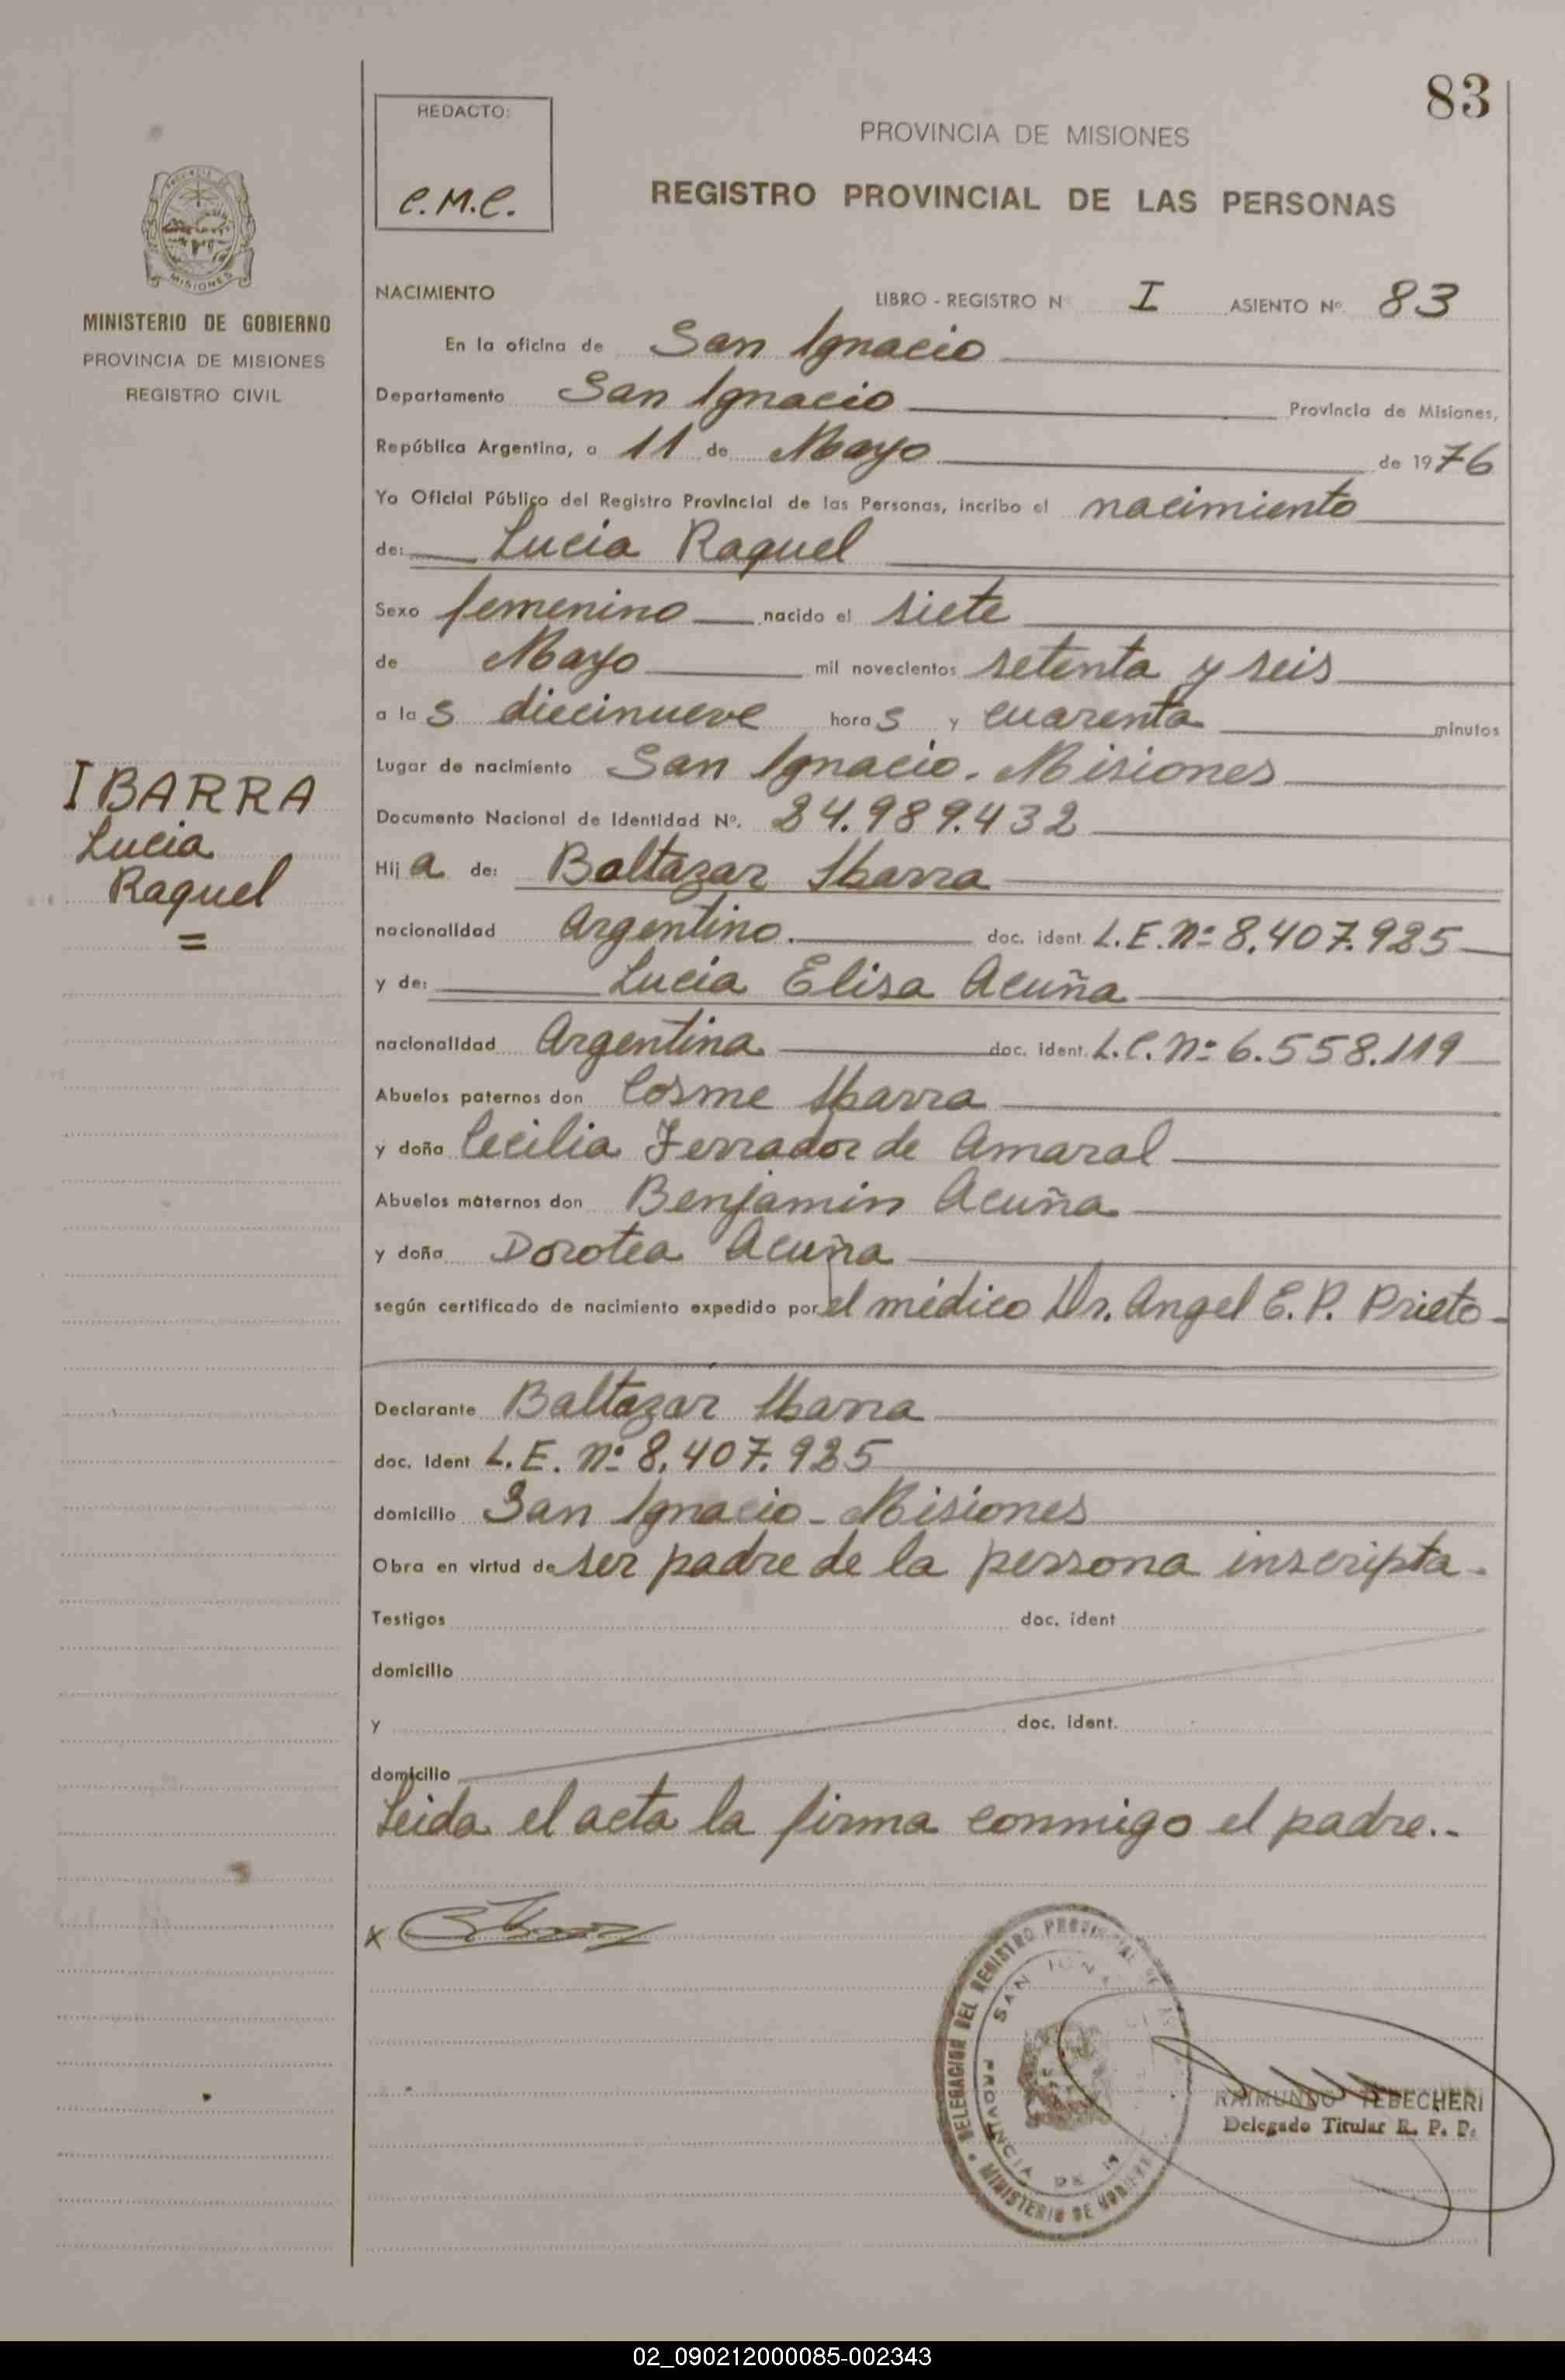 83
REDACTO:
C.M.C.
PROVINCIA DE MISIONES
REGISTRO PROVINCIAL DE LAS PERSONAS
MINISTERIO DE GOBIERNO
PROVINCIA DE MISIONES
REGISTRO CIVIL
NACIMIENTO LIBRO - REGISTRO N I ASIENTO Nº. 83
En la oficina de San Ignacio
Departamento San Ignacio Provincia de Misiones,
República Argentina, a 11 de Mayo de 1976
Yo Oficial Público del Registro Provincial de las Personas, incribo el nacimiento
de: Lucia Raquel
Sexo femenino nacido el siete
de Mayo mil novecientos setenta y seis
a las diecinueve horas y cuarenta minutos
Lugar de nacimiento San Ignacio. Misiones
Documento Nacional de Identidad Nº. 24.989.432
IBARRA
Lucia
Raquel
=
Hija de: Baltazar Ibarra
nacionalidad Argentino. doc. ident. L.E. Nº 8.407.925
y de: Lucia Elisa Acuña
nacionalidad Argentina doc. ident. L.C. Nº 6.558.119
Abuelos paternos don Cosme Ibarra
y doña Cecilia Ferrador de Amaral
Abuelos maternos don Benjamin Acuña
y doña Dorotea Acuña
según certificado de nacimiento expedido por el médico Dr. Angel E. P. Prieto-
Declarante Baltazar Ibarra
doc. Ident L.E. Nº 8.407.925
domicilio San Ignacio - Misiones
Obra en virtud de ser padre de la persona inscripta.
Testigos doc. ident
domicilio
y doc. ident.
domicilio
Leida el acta la firma conmigo el padre..
x
DELEGACION DEL REGISTRO PROVINCIAL DE
SAN IGNA
PROVINCIA DE M
MINISTERIO DE GOBIERNO
RAIMUNDO TEBECHERI
Delegado Titular R. P. P.
02_090212000085-002343